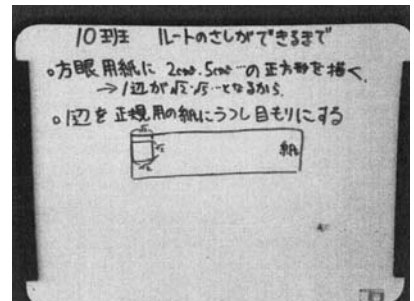 10班 ルートのさしができるまで
○方眼用紙に 2cm²・5cm²…の正方形を描く。
→1辺が√2・√5…となるから。
○1辺を正規用の紙にうつし目もりにする
√2
√2
紙